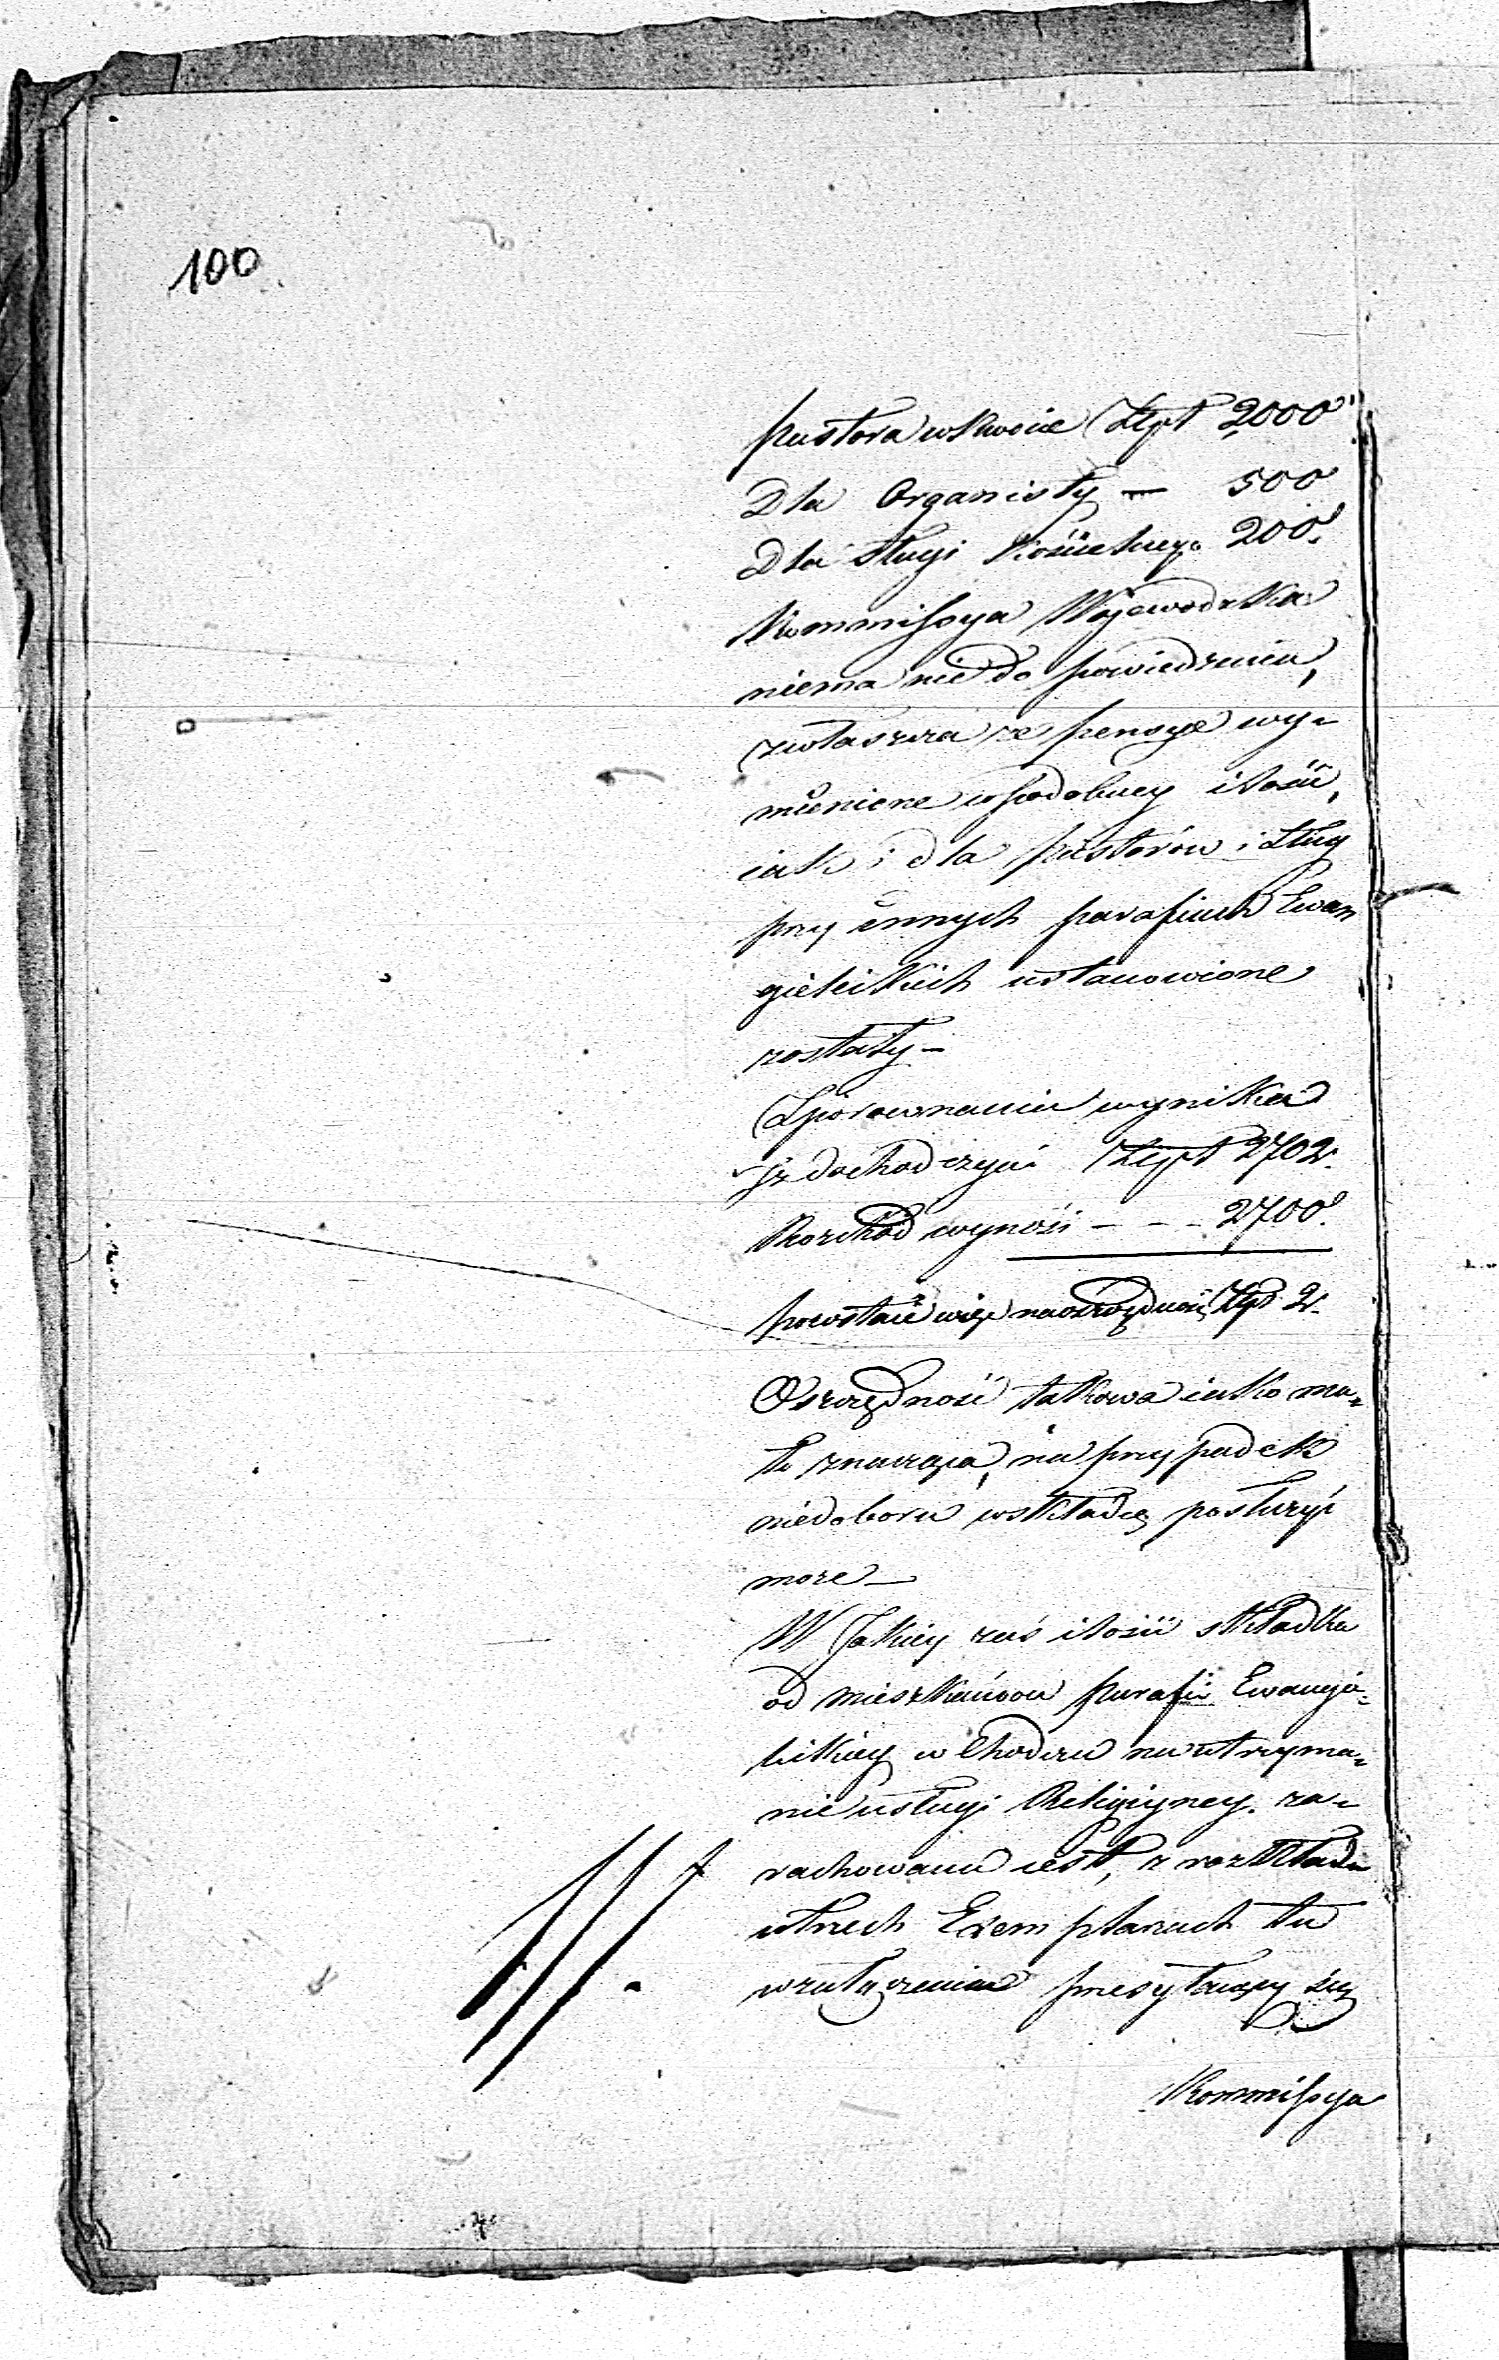 100
pastora w kwocie Złpt 2000
Dla Organisty — 500
Dla sługi kościelnego 200.
Kommissya Wojewodzka
niema nic do powiedzenia,
zwłaszcza że pensye wy-
mienione w podobney ilości,
iak i dla pastorów i sług
przy innych parafiach Ewan
gielickich ustanowione
zostały —
Z porownania wynika
iż dochod czyni Złpt 2702.
Rozchód wynosi - - - 2700.
powstaie więc na oszczędność Złpt 2.
Oszczędność takowa iako ma-
ło znacząca, na przypadek
niedoboru w składce posłużyć
może —
W Jakiey zaś ilości składka
od mieszkańcow parafii Ewangie-
lickiey w Chodczu na utrzyma-
nie usługi Religiyney za-
rachowana iest, z rozkładu
w trzech Exemplarzach tu
w załączeniu przesyłaiący się
Kommissya